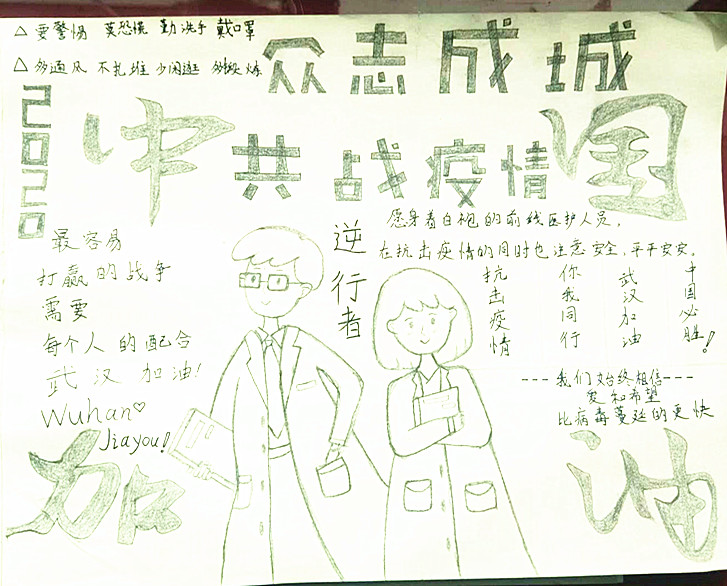 △ 要警惕 莫恐慌 勤洗手 戴口罩
△ 多通风 不扎堆 少闲逛 多锻炼
众志成城
2020
中国
共战疫情
愿身着白袍的前线医护人员,
在抗击疫情的同时也注意安全,平平安安。
逆行者
最容易
打赢的战争
需要
每个人的配合
武汉加油!
Wuhan♡
Jiayou!
抗击疫情
你我同行
武汉加油
中国必胜!
---我们始终相信---
爱和希望
比病毒蔓延的更快
加油